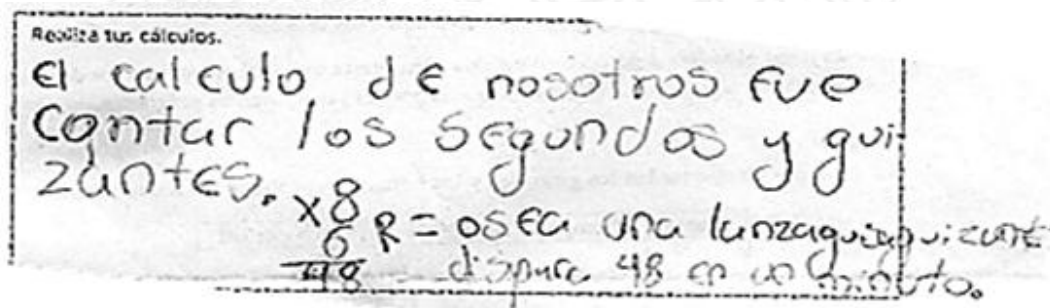 Realiza tus cálculos.
El calculo de nosotros fue
contar los segundos y gui
zantes.
x 8
6
48
R = osea una lanzaguisaguizante
dispara 48 en un minuto.